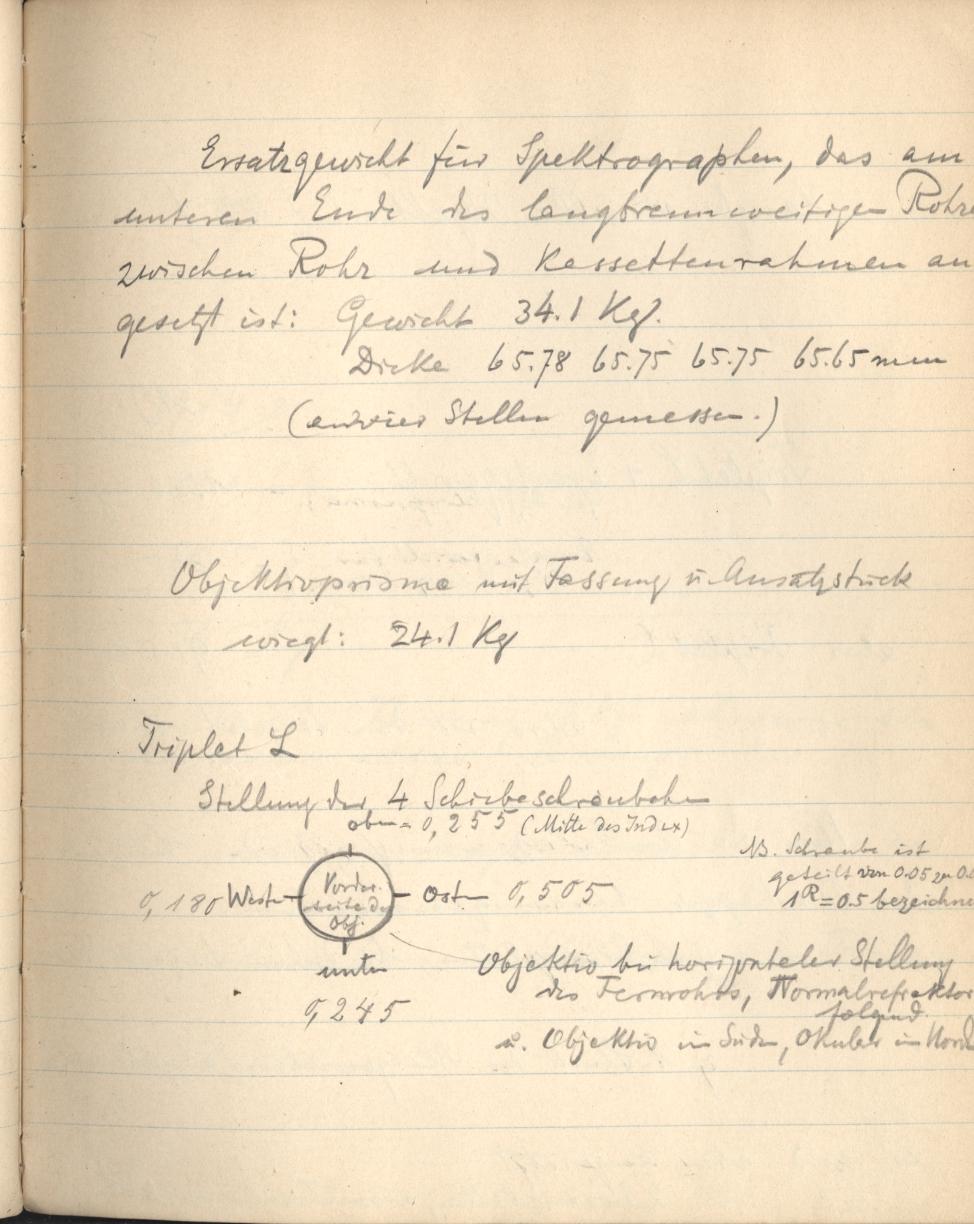 Ersatzgewicht für Spektrographen, das am
unteren Ende des langbrennweitigen Rohres
zwischen Rohr und Kassettenrahmen an
gesetzt ist: Gewicht 34.1 Kg.
Dicke 65.78 65.75 65.75 65.65 mm
(an vier Stellen gemessen.)
Objektivprisma mit Fassung u. Ansatzstück
wiegt: 24.1 Kg
Triplet L
Stellung der 4 Schiebeschrauben
oben = 0,255 (Mitte des Index)
NB. Schraube ist
geteilt von 0.05 zu 0.0
1R = 0.5 bezeichne
0,180 West Vorder- Ost 0,505
seite des
Obj.
unten
0,245
Objektiv bei horizontaler Stellung
des Fernrohrs, Normalrefraktor
folgend.
u. Objektiv im Süden, Okular im Nord